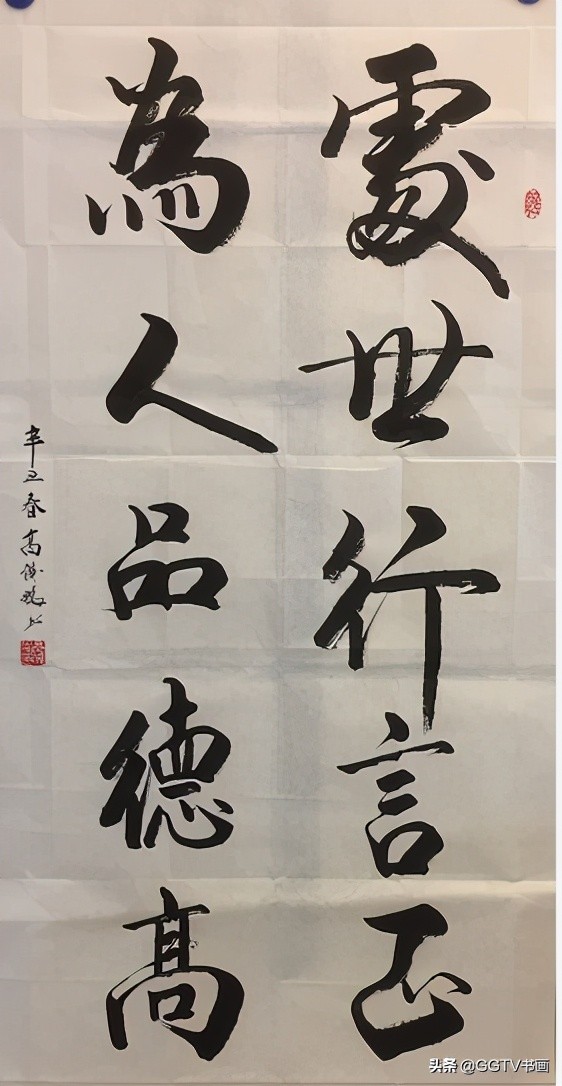 處世行言正
為人品德高
辛丑春高
头条 @GGTV书画